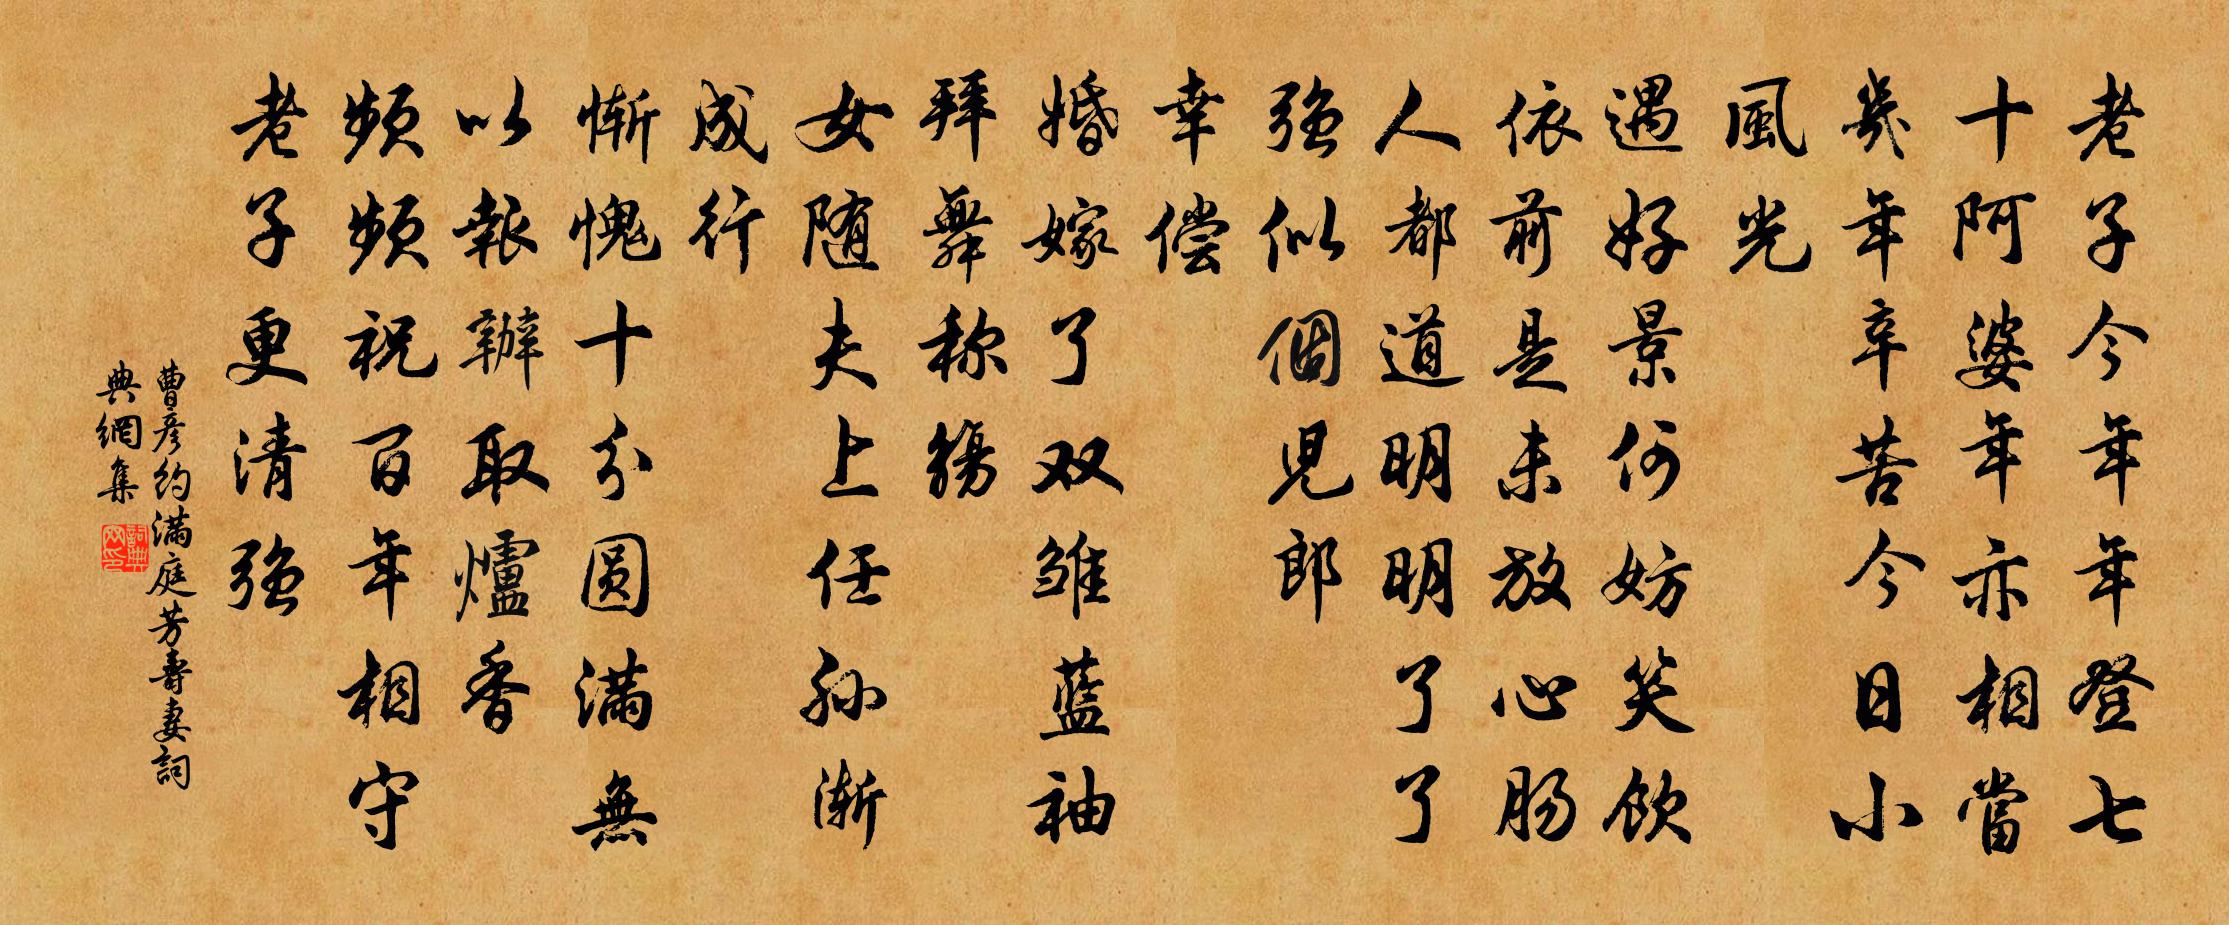 老子今年年登七
十阿婆年亦相當
幾年辛苦今日小
風光
遇好景何妨笑飲
依前是未放心肠
人都道明明了了
强似個児郎
幸偿
婚嫁了双雏藍袖
拜舞称觞
女随夫上任孙渐
成行
惭愧十分圆满無
以報辦取爐香
频频祝百年相守
老子更清强
曹彦约满庭芳壽妻詞
典網集
詞典網印